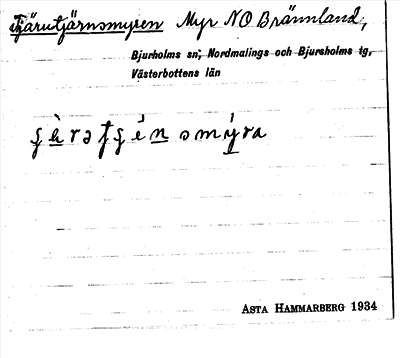 Tjärutjärnsmyren Myr NO Brännland,
Bjurholms sn; Nordmalings och Bjursholms tg,
Västerbottens län
ASTA HAMMARBERG 1934